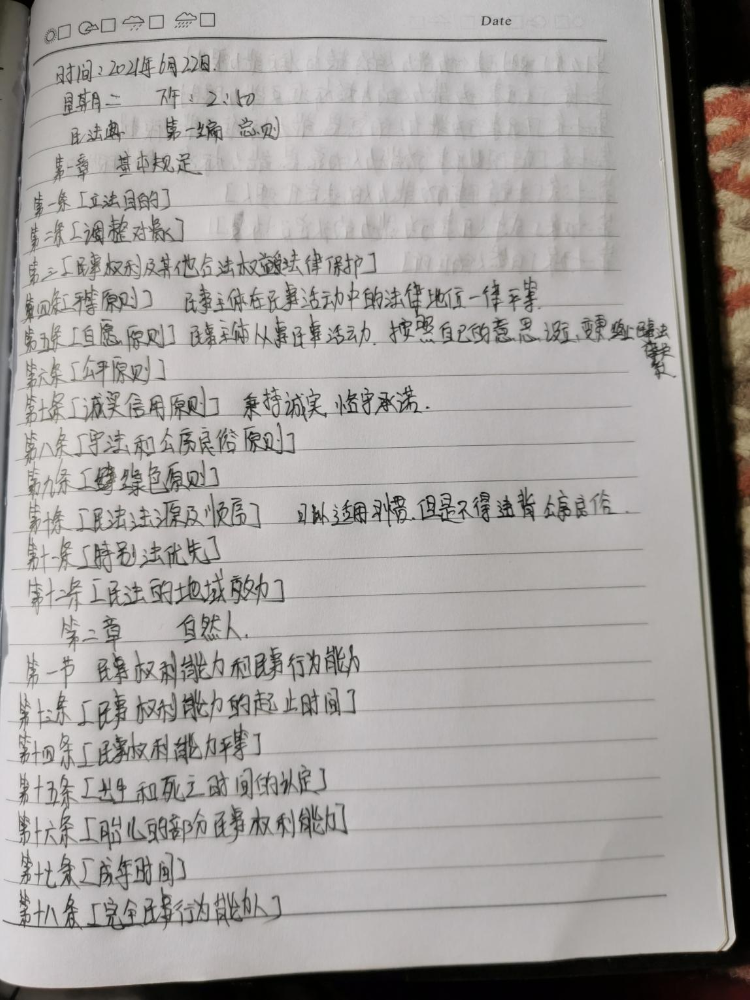 Date
时间:2021年6月22日.
星期二 下午:2:50
民法典 第一编 总则
第一章 基本规定
第一条[立法目的]
第二条[调整对象]
第三[民事权利及其他合法权益受法律保护]
第四条[平等原则] 民事主体在民事活动中的法律地位一律平等.
第五条[自愿原则] 民事主体从事民事活动,按照自己的意思设立、变更、终止民事法律关系
第六条[公平原则]
第七条[诚实信用原则] 秉持诚实,恪守承诺.
第八条[守法和公序良俗原则]
第九条[绿色原则]
第十条[民法法源及顺序] 可以适用习惯,但是不得违背公序良俗.
第十一条[特别法优先]
第十二条[民法的地域效力]
第二章 自然人.
第一节 民事权利能力和民事行为能力
第十三条[民事权利能力的起止时间]
第十四条[民事权利能力平等]
第十五条[出生和死亡时间的认定]
第十六条[胎儿的部分民事权利能力]
第十七条[成年时间]
第十八条[完全民事行为能力人]